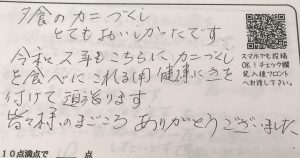 夕食のカニづくし
とてもおいしかったです
令和2年もこちらにカニづくし
を食べにこれる用健康に気を
付けて過ごります。
皆々様のまごころありがとうございました
スマホでも投稿
OK!チェック欄
記入後フロント
へお渡し下さい。
10点満点で 点